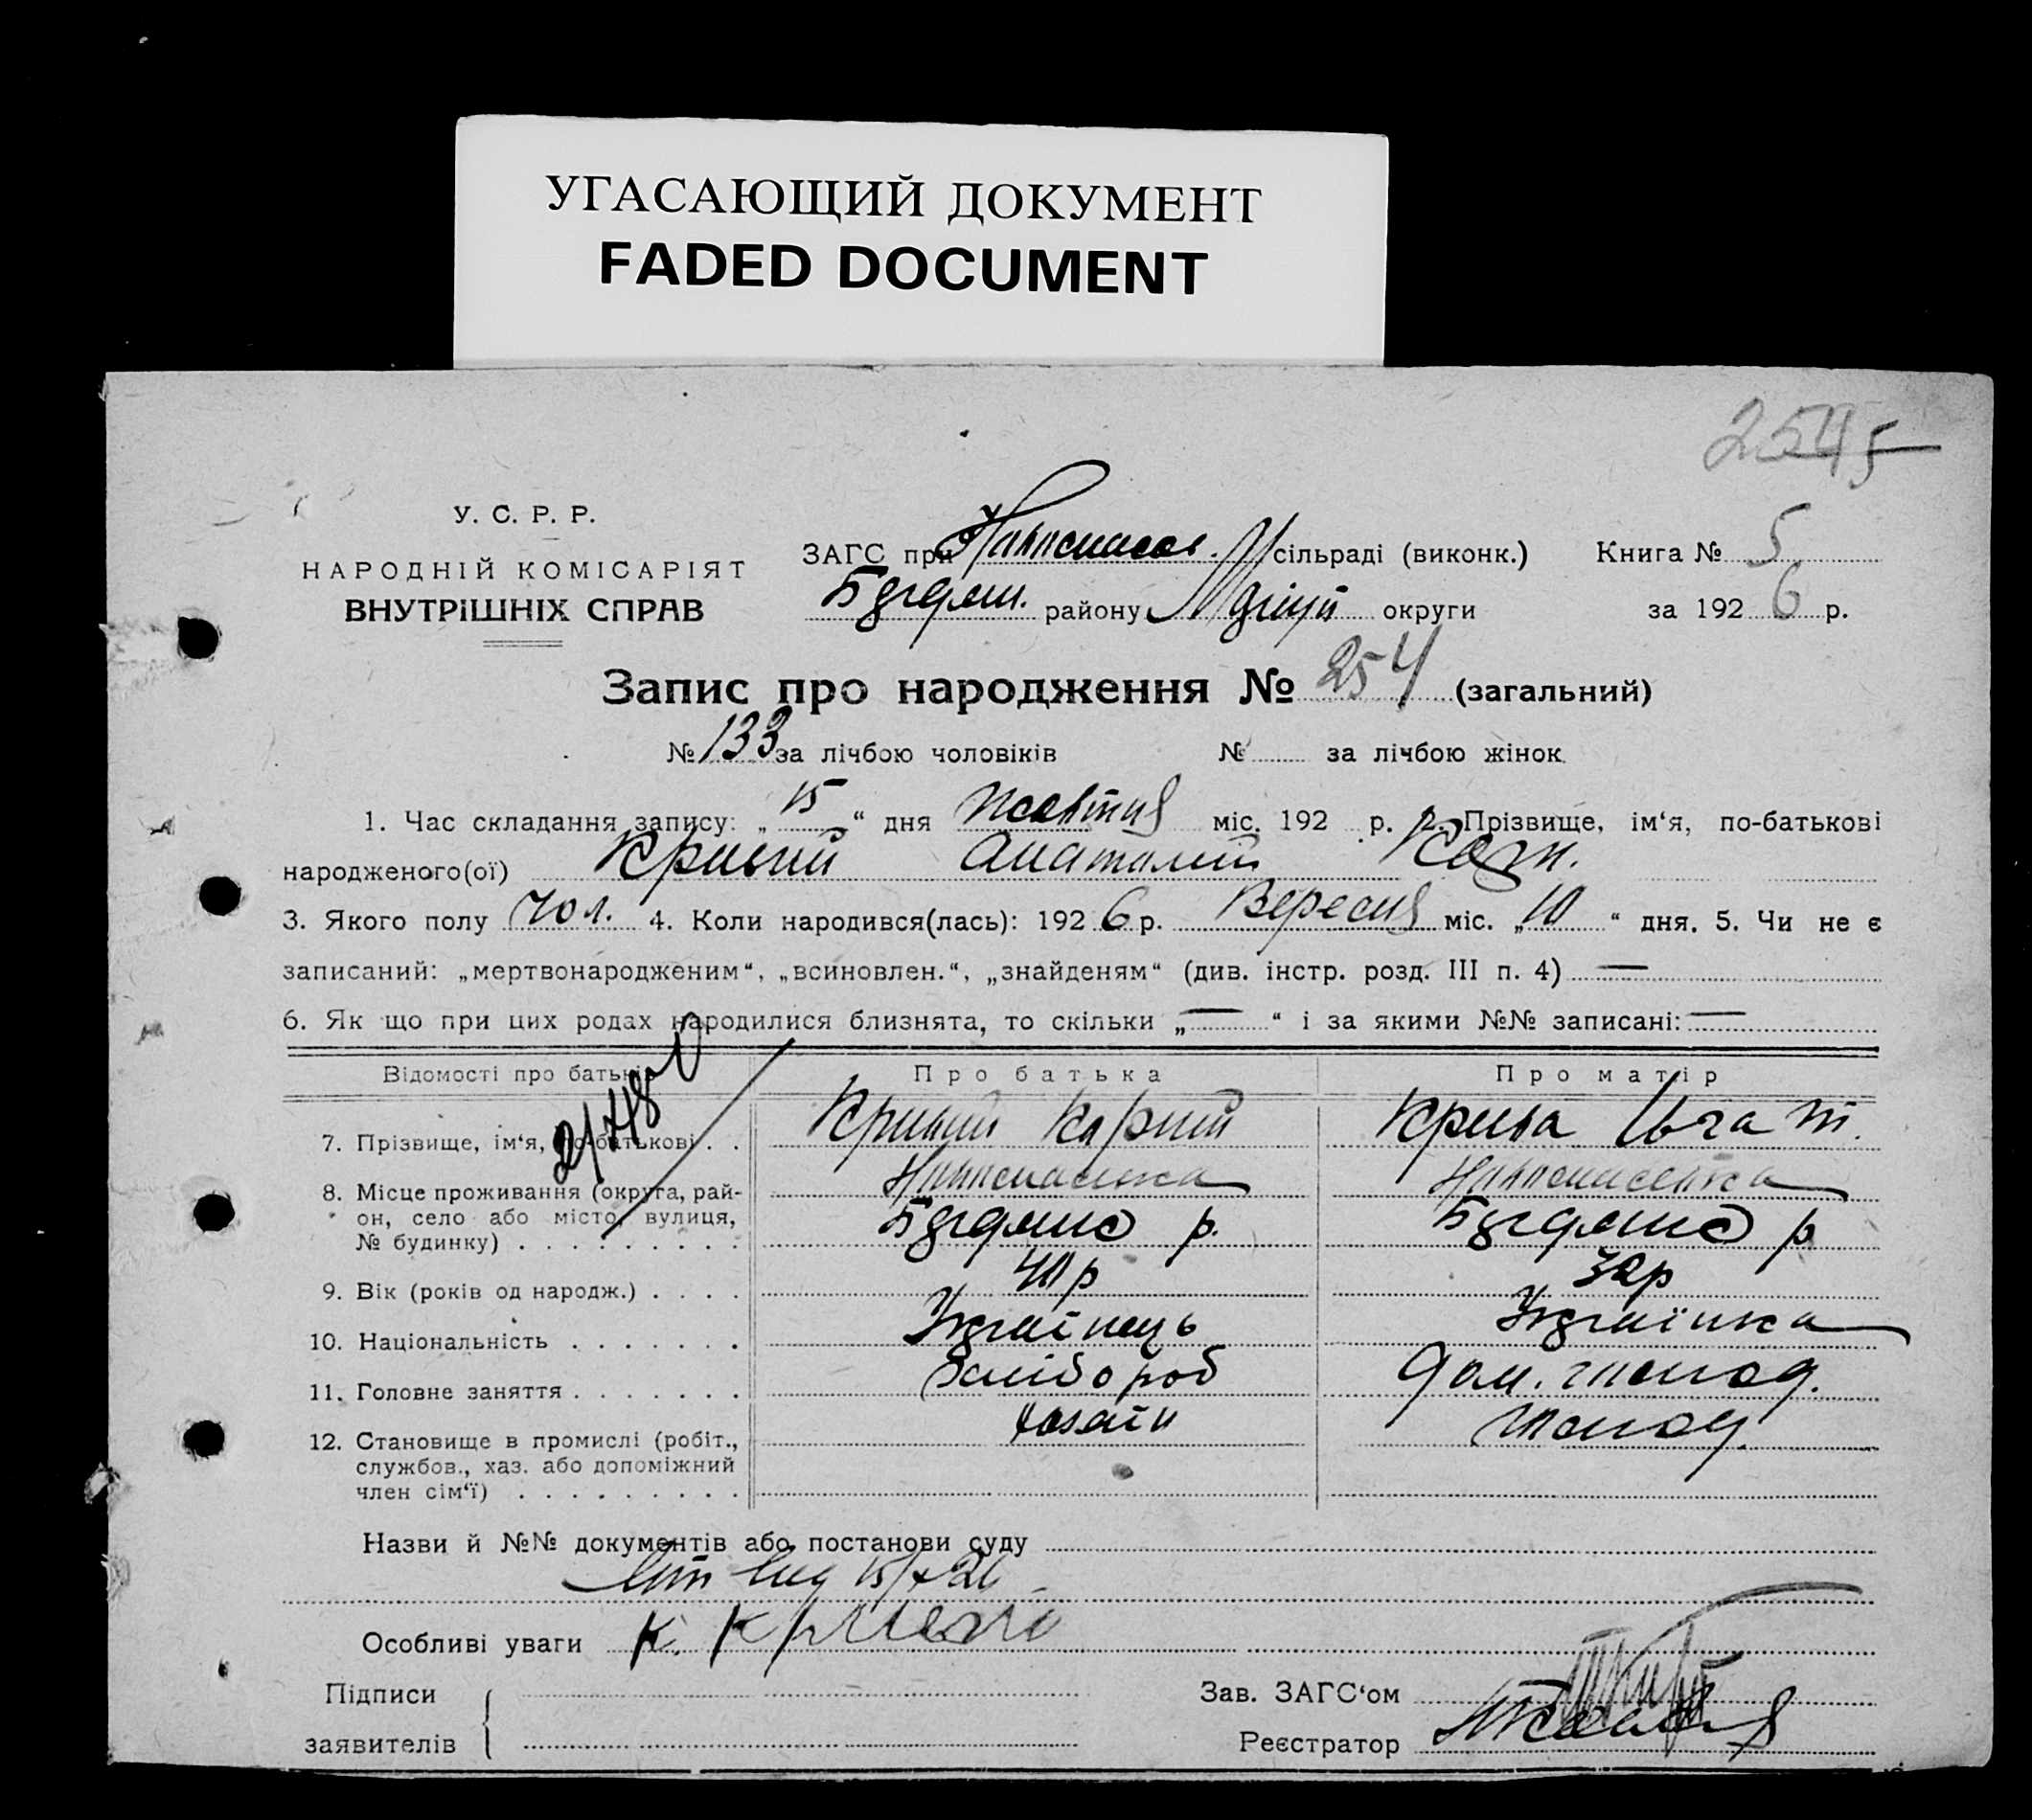 УГАСАЮЩИЙ ДОКУМЕНТ
FADED DOCUMENT
2545
У. С. Р. Р.
НАРОДНІЙ КОМІСАРІЯТ
ВНУТРІШНІХ СПРАВ
ЗАГС при сільраді (виконк.)
району округи
Книга № 5
за 1926 р.
Запис про народження № 254 (загальний)
№ 133 за лічбою чоловіків № за лічбою жінок
1. Час складання запису: „15“ дня Жовтня міс. 192 р. 2. Прізвище, ім‘я, по-батькові
народженого(ої) Кривий Анатолій
3. Якого полу Чол. 4. Коли народився(лась): 1926 р. Вересня міс. „10“ дня. 5. Чи не є
записаний: „мертвонародженим“, „всиновлен.“, „знайденям“ (див. інстр. розд. III п. 4) —
6. Як що при цих родах народилися близнята, то скільки „—“ і за якими №№ записані: —
Відомості про батьків Про батька Про матір
7. Прізвище, ім‘я, по-батькові . . Кривий Карпий Крива
8. Місце проживання (округа, рай-
он, село або місто, вулиця, р. р
№ будинку) . . . . . . . . .
9. Вік (років од народж.) . . . . 40 р 32р
10. Національність . . . . . . . Українець Українка
11. Головне заняття . . . . . . . Хлібороб Дом. господ.
12. Становище в промислі (робіт., хазяїн господ.
службов., хаз. або допоміжний
член сім‘ї) . . . . . . . . .
Назви й №№ документів або постанови суду
Особливі уваги К. Кривий
Підписи
заявителів
Зав. ЗАГС‘ом
Реєстратор